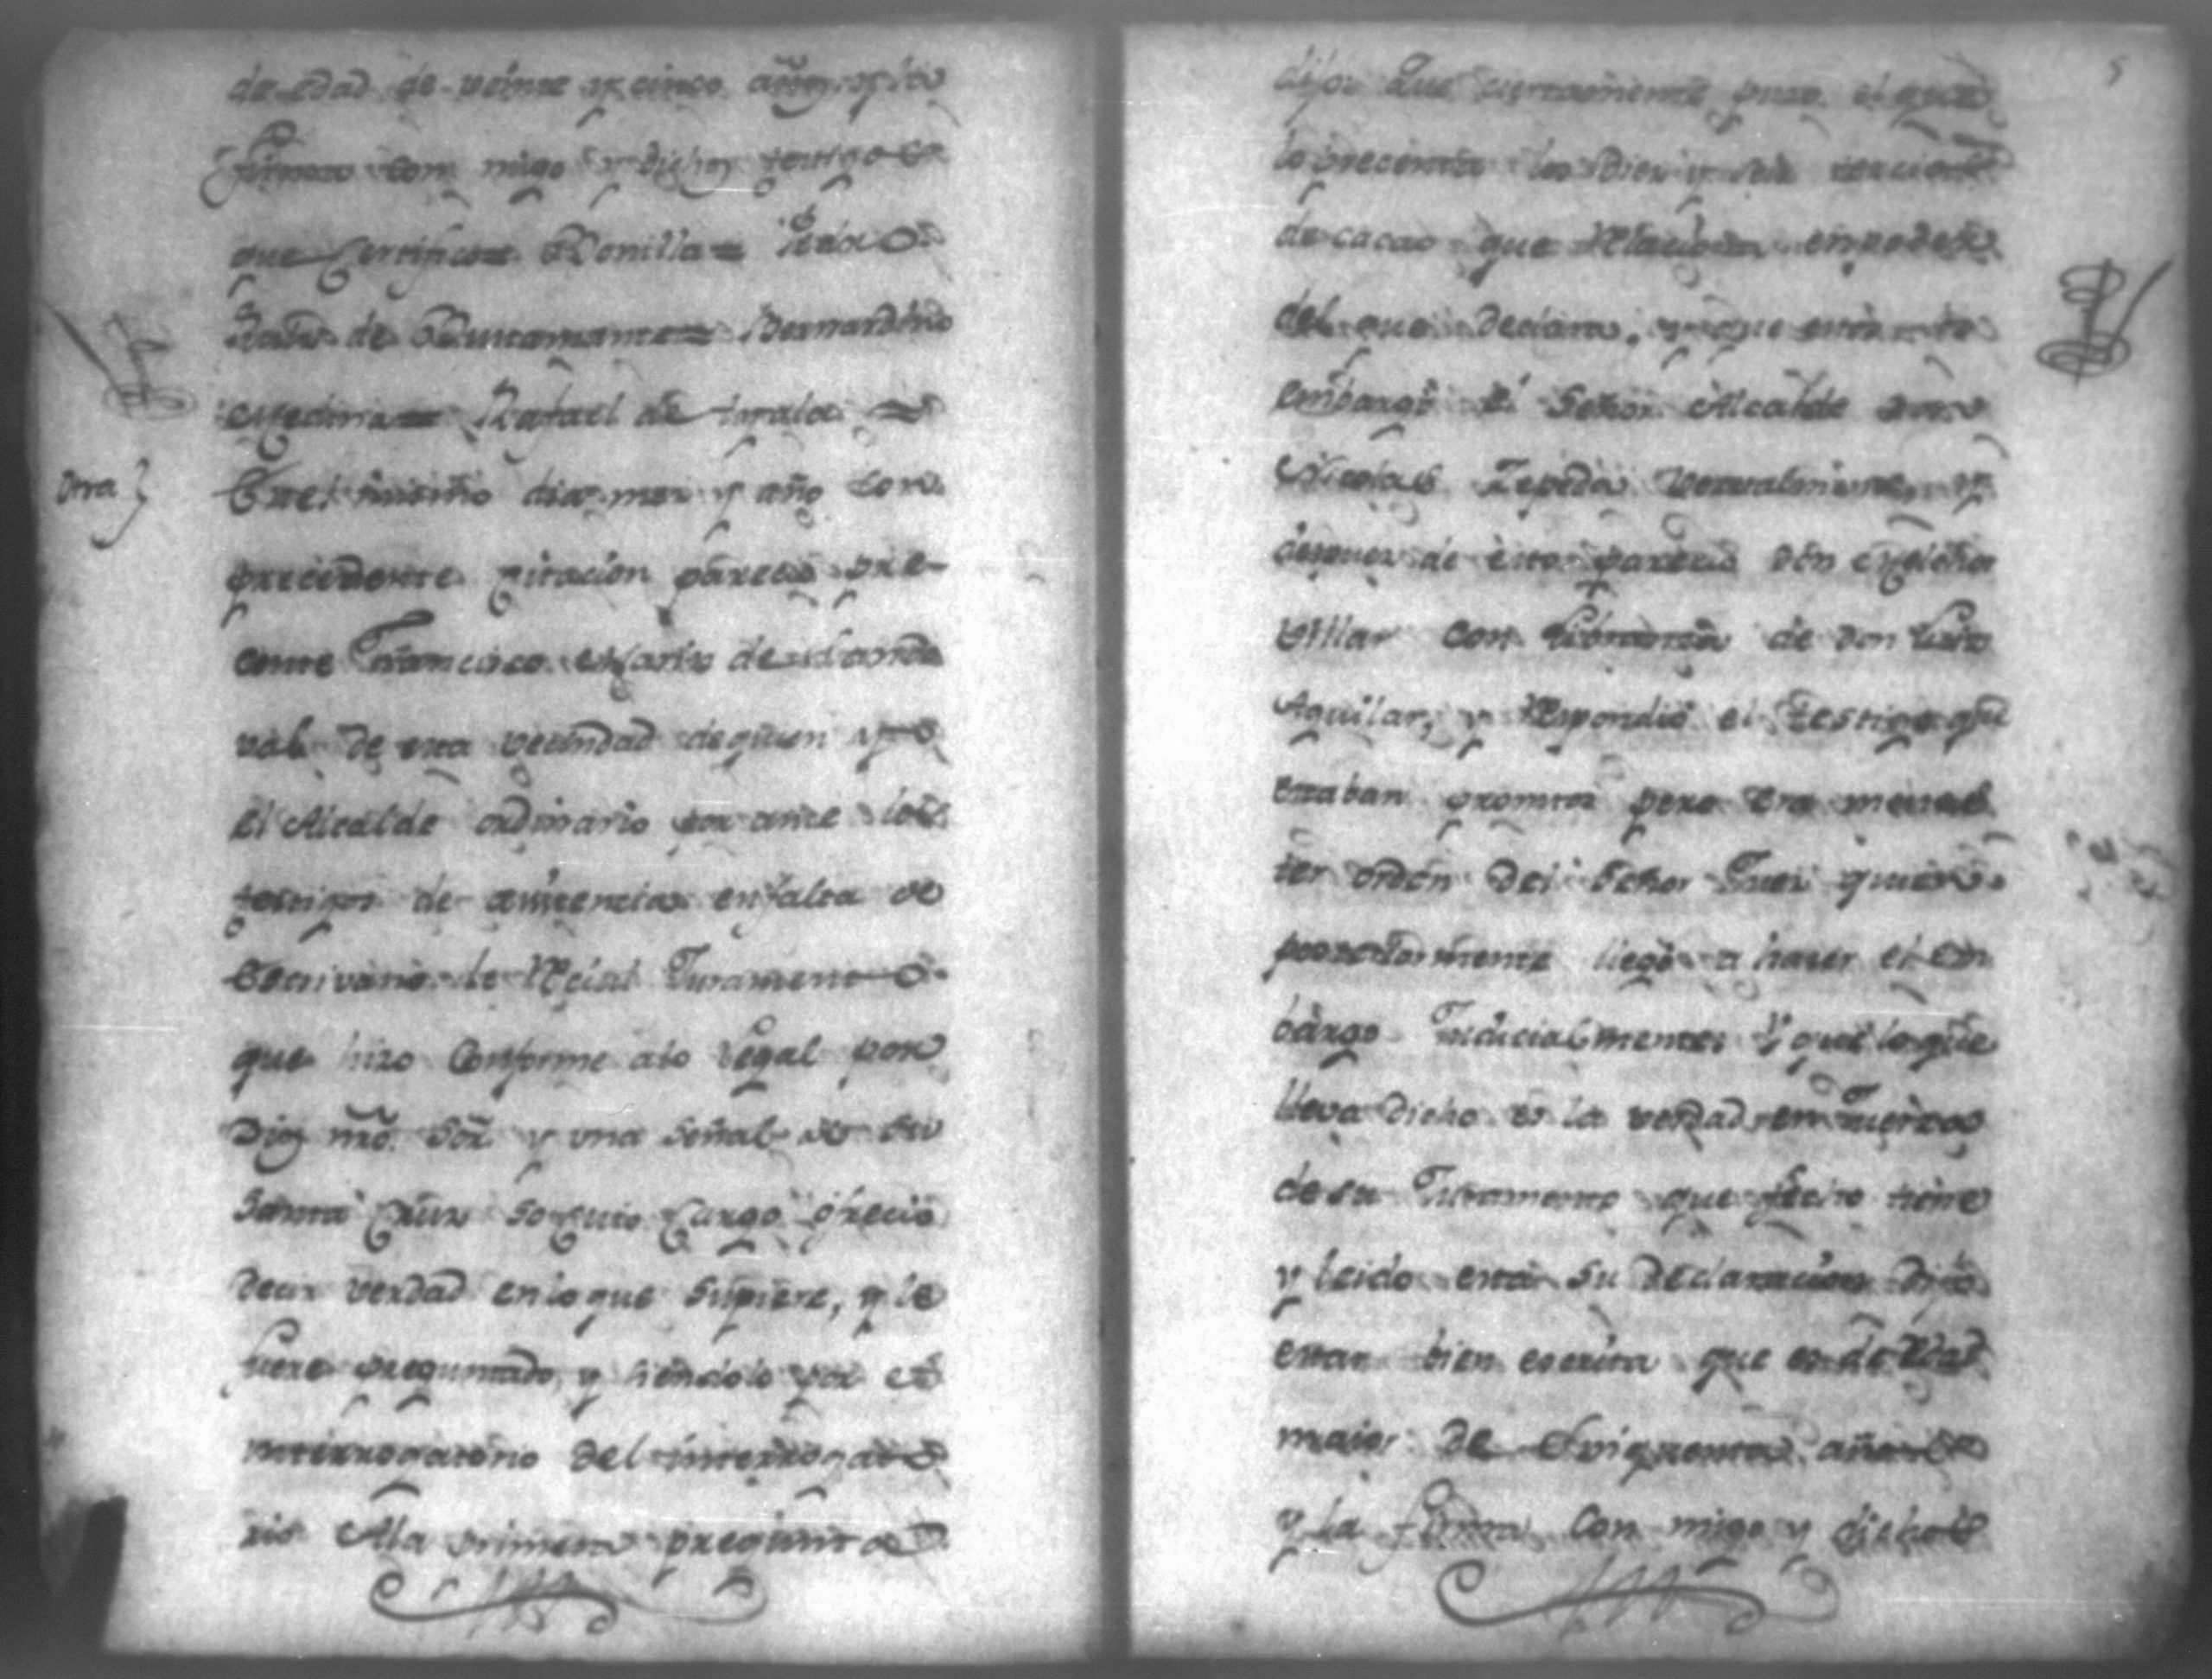 de edad de veinte y cinco años, y la
firmo con migo y dichos testigos
que Certifico = Bonilla =
de Bustamante = Bernardino
Medina = Rafael de
Otra
En el mismo dia, mes y año con
precedente citacion parecio pre-
cente Francisco Maria de
de esta vecindad de quien yo
el Alcalde ordinario por ante los
testigos de asistencia en falta de
Escrivano le Recivi Juramento
que hizo Conforme a lo legal por
Dios nrõ. Sor. y una señal de su
Santa Cruz so cuio Cargo ofrecio
decir verdad en lo que supiere, y le
fuere preguntado, y siendolo por el
interrogatorio del interrogato
rio Ala primera pregunta
5
dijo: Que ciertamente puso el que
lo precenta los diez y seis tercios
de cacao que Relaciona en poder
del que declara, y que estos
embargó el Señor Alcalde
Nicolas Zepeda vervalmente, y
despues de esto parecio Don Melchor
Villar con de Don
Aguilar, y Respondió el Testigo que
estaban promtos pero era menes
ter orden del Señor Juez quien
posteriormente llegó a hacer el em
bargo Judicialmente: Y que lo que
lleva dicho es la verdad en fuerza
de su Juramento que fecho tiene
y leida esta su declaracion dijo
estar bien escrita que es de edad
maior de años
y la firmo con migo y dichos